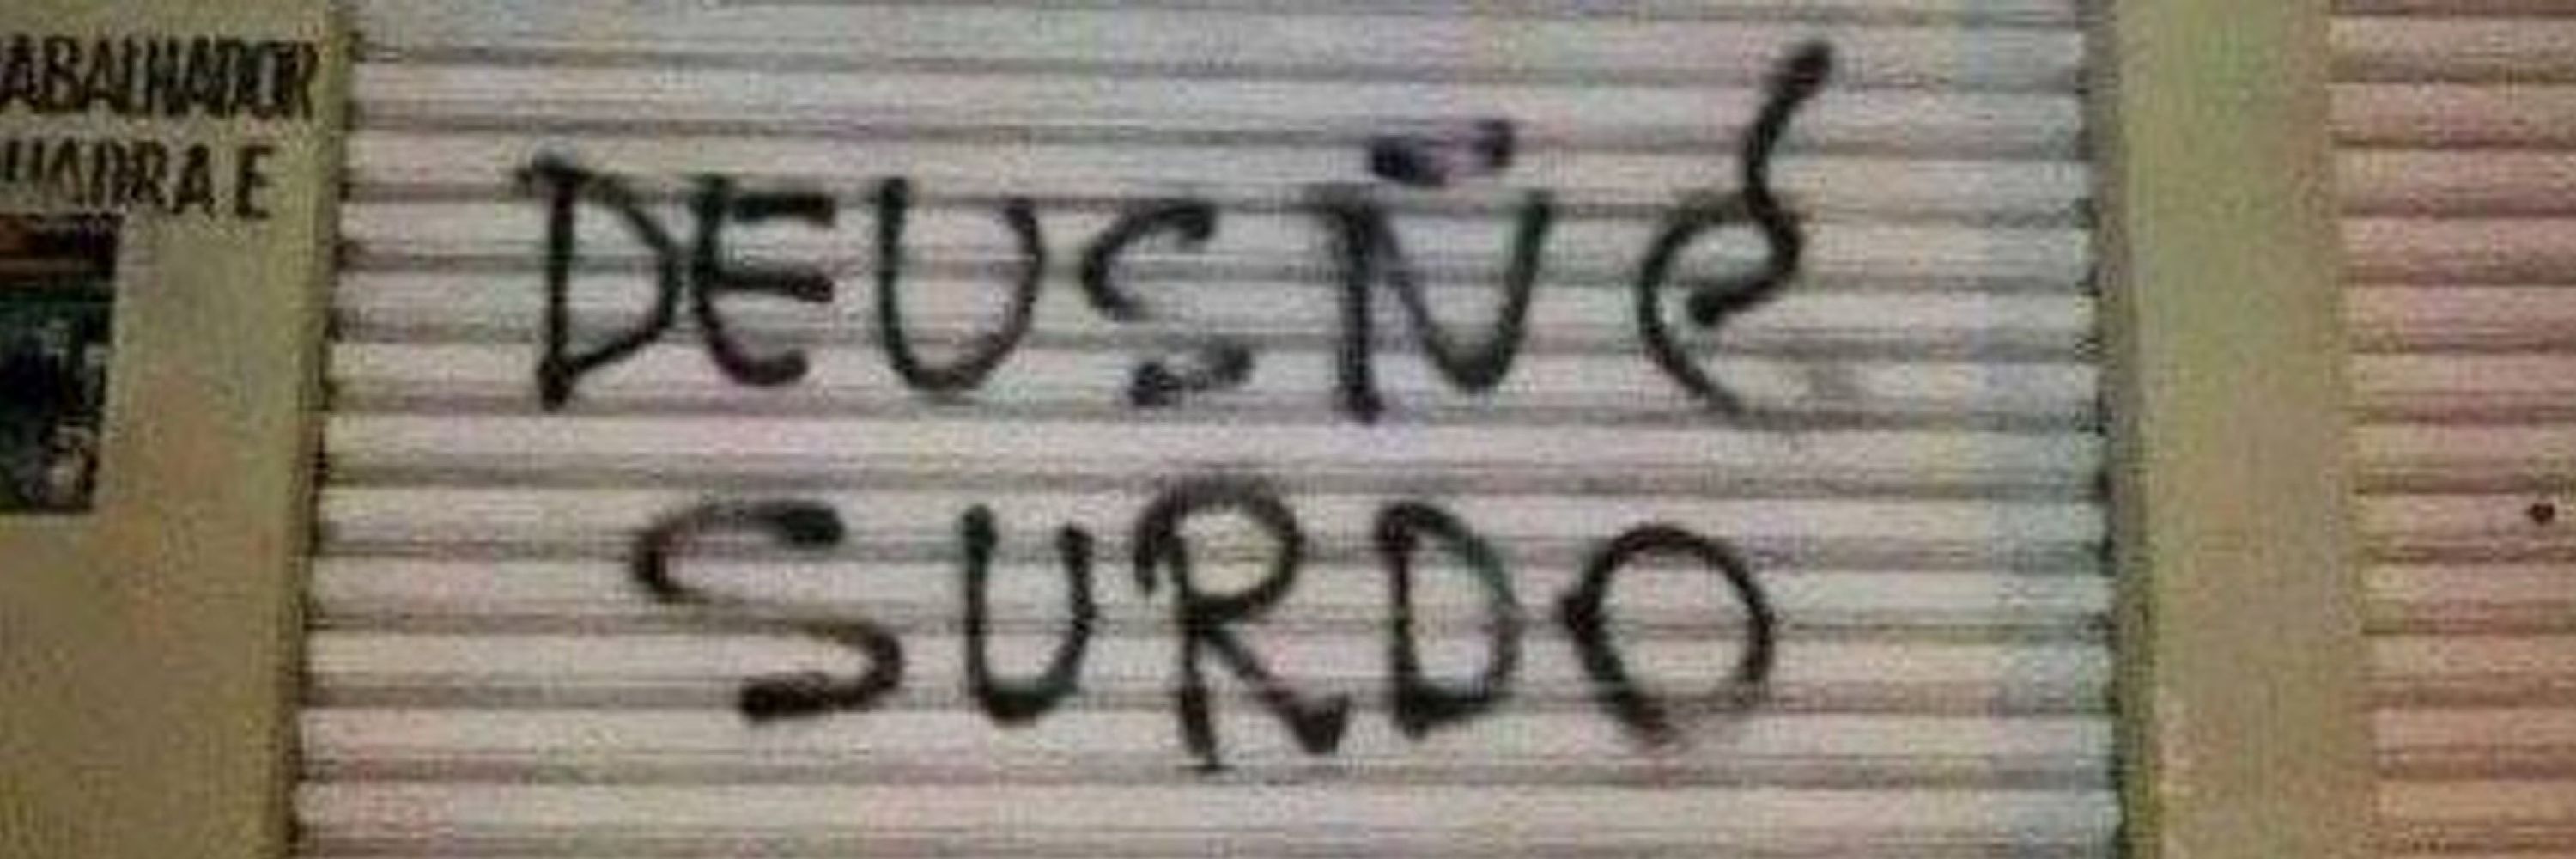 ABALHADOR
UADRA E
DEUS Ñ É
SURDO